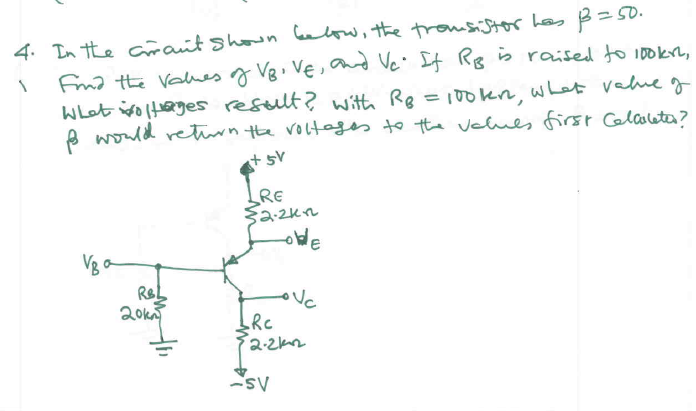 4. In the circuit shown below, the transistor has β = 50.
Find the values of VB, VE, and Vc. If RB is raised to 100kΩ,
what voltages result? with RB = 100kΩ, what value of
β would return the voltages to the values first calculated?
+5V
RE
2.2kΩ
VE
VB
RB
20kΩ
Vc
Rc
2.2kΩ
-5V